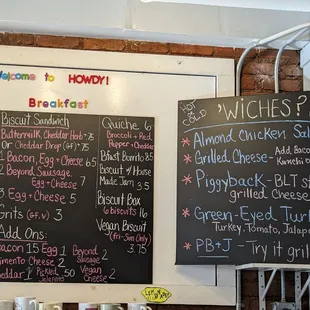 Welcome to HOWDY!
Breakfast
Biscuit Sandwich
Buttermilk, Cheddar Herb +.75
Or Cheddar Drop (GF) +.75
1 Bacon, Egg + Cheese 6.5
2 Beyond Sausage,
Egg + Cheese 7
3 Egg + Cheese 5
Grits (G.F. V) 3
Add Ons:
Bacon 1.5 Egg 1 Beyond Sausage 2
Pimento Cheese 2
Cheddar 1 Pickled Jalapeno .50 Vegan Cheese 2
Quiche 6
Broccoli + Red
Pepper + Cheddar
Bfast Burrito 8.5
Biscuit w/ House
Made Jam 3.5
Biscuit Box
6 biscuits 16
Vegan Biscuit
(Fri-Sun Only)
3.75
HOT OR COLD 'WICHES?
* Almond Chicken
* Grilled Cheese - Add Bacon
* Piggyback - BLT
grilled Cheese
* Green-Eyed
Turkey, Tomato,
* PB+J - Try it